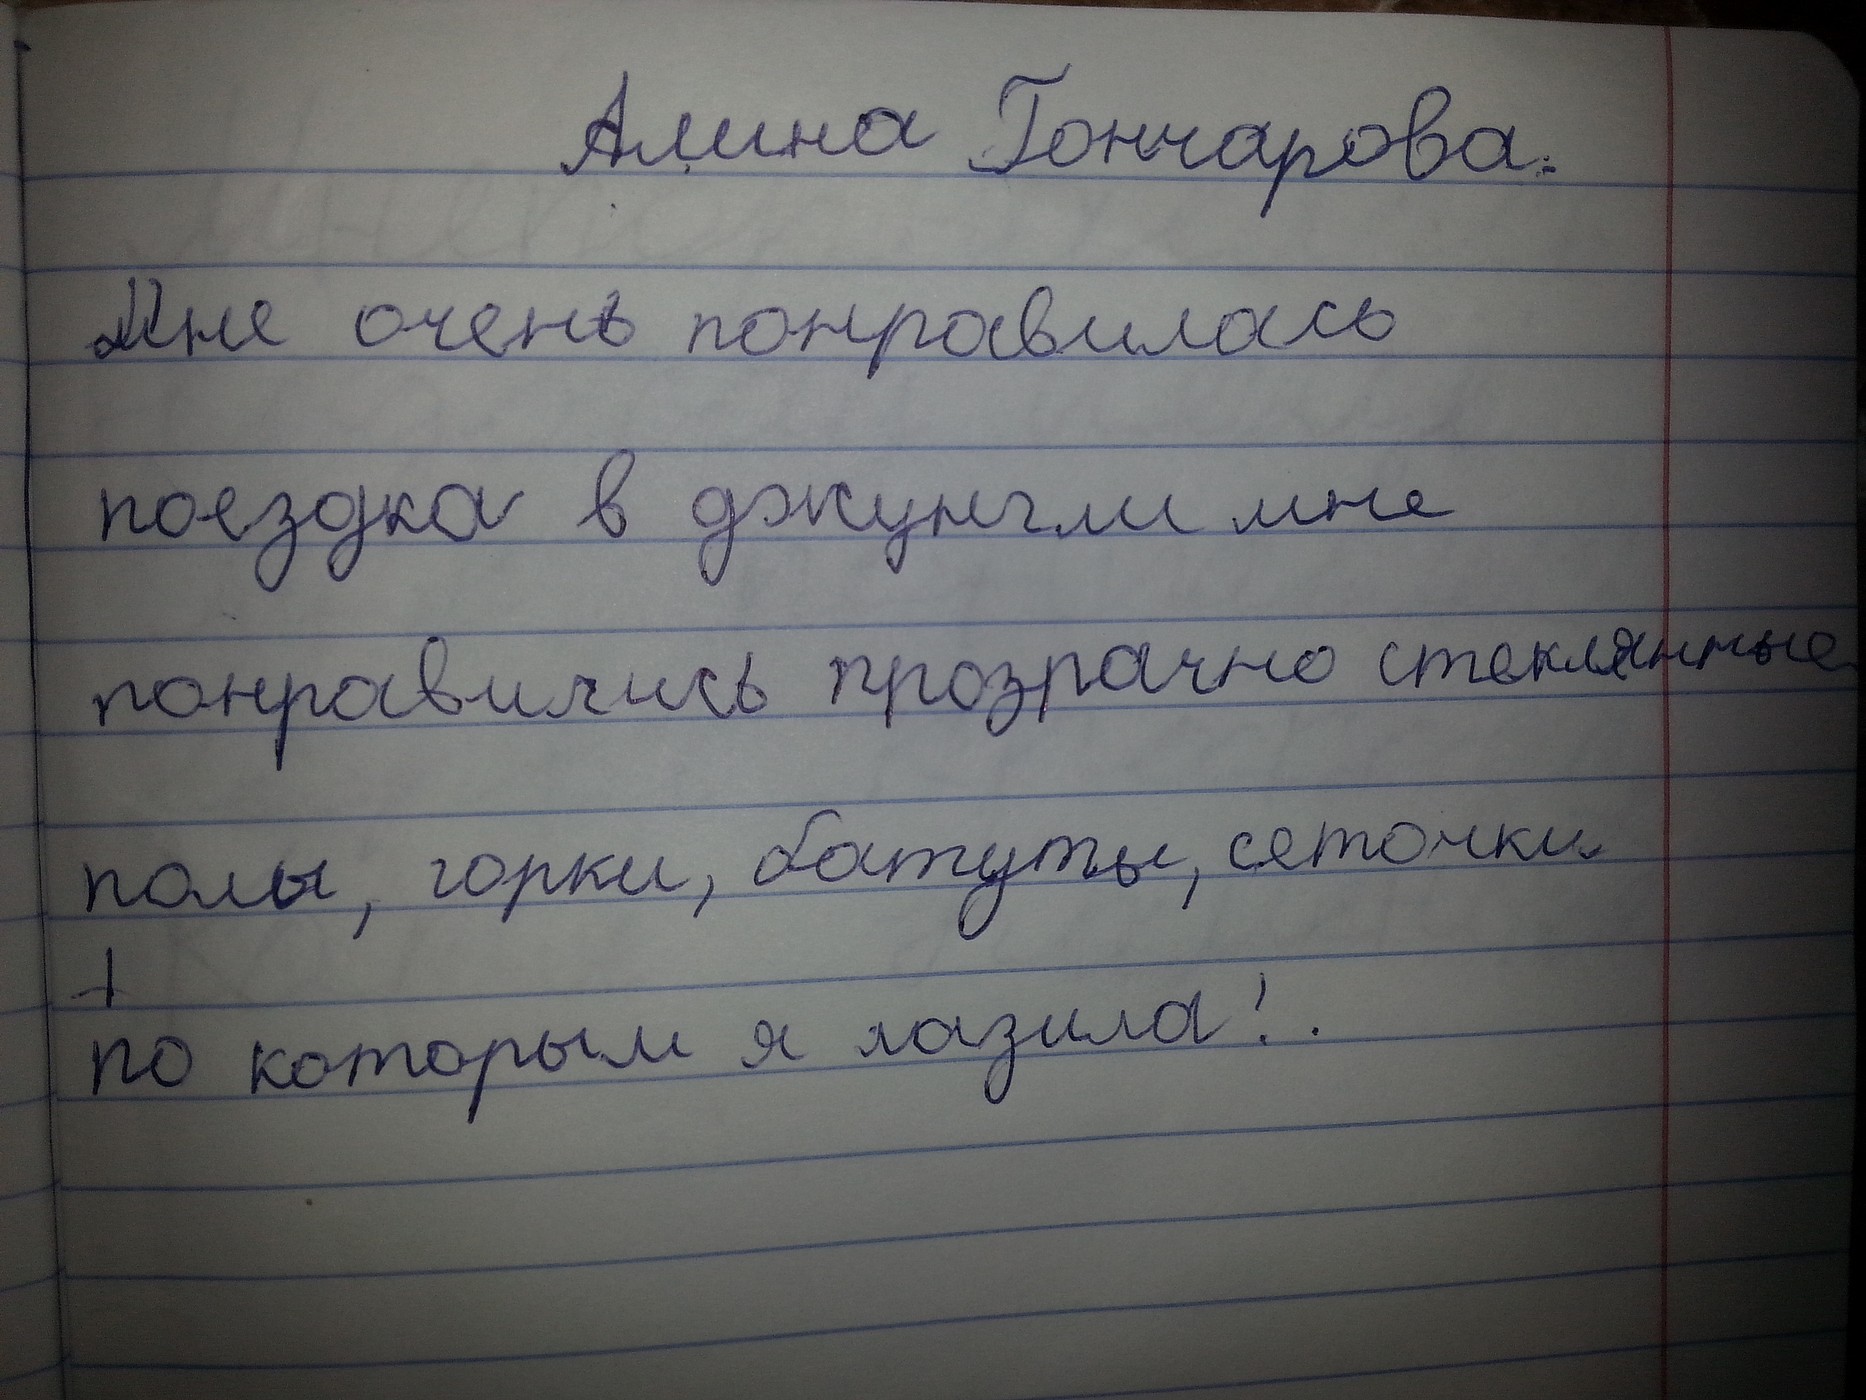 Алина Гончарова.
Мне очень понравилась
поездка в джунгли мне
понравились прозрачно стеклянные
полы, горки, батуты, сеточки
+
по которым я лазила!.